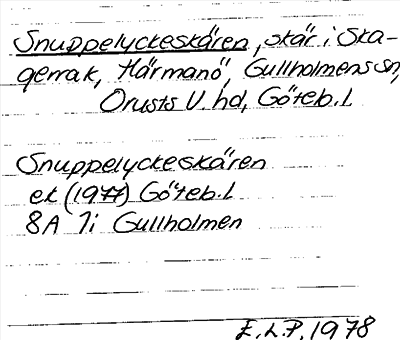 Snuppelyckeskären, skär i Ska-
gerrak, Härmanö, Gullholmens sn,
Orusts V. hd, Göteb. l.
Snuppelyckeskären
ek (1977) Göteb. l
8A 7i Gullholmen
E.L.P. 1978